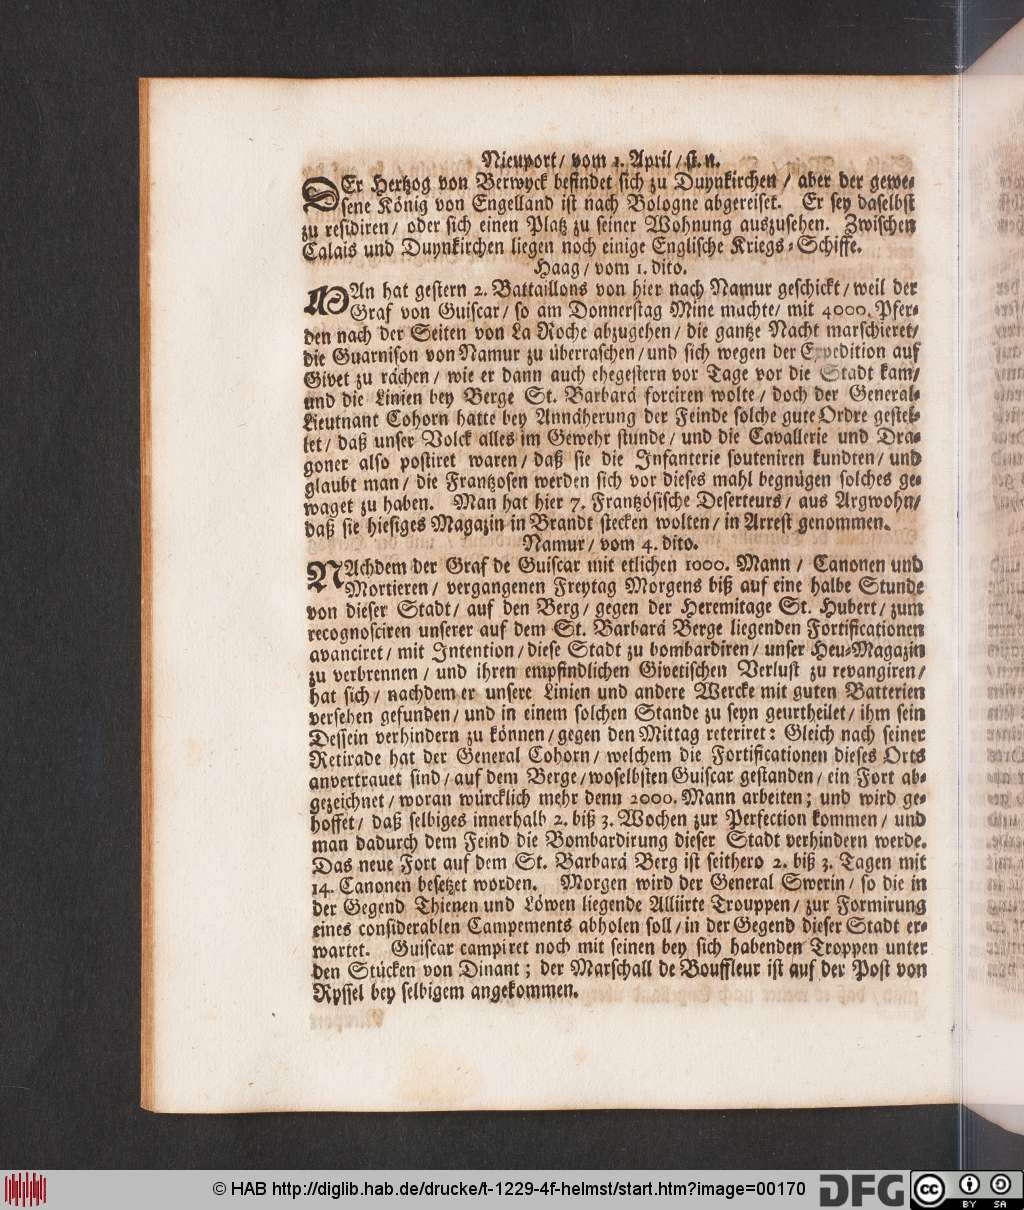 Nieuport / vom 1. April / st. n.
DEr Hertzog von Berwyck befindet sich zu Duynkirchen / aber der gewe-
sene König von Engelland ist nach Bologne abgereiset. Er sey daselbst
zu residiren / oder sich einen Platz zu seiner Wohnung auszusehen. Zwischen
Calais und Duynkirchen liegen noch einige Englische Kriegs-Schiffe.
Haag / vom 1. dito.
MAn hat gestern 2. Battaillons von hier nach Namur geschickt / weil der
Graf von Guiscar / so am Donnerstag Mine machte / mit 4000. Pfer-
den nach der Seiten von La Roche abzugehen / die gantze Nacht marschieret /
die Guarnison von Namur zu überraschen / und sich wegen der Expedition auf
Givet zu rächen / wie er dann auch ehegestern vor Tage vor die Stadt kam /
und die Linien bey Berge St. Barbará forciren wolte / doch der General-
Lieutnant Cohorn hatte bey Annäherung der Feinde solche gute Ordre gestel-
let / daß unser Volck alles im Gewehr stunde / und die Cavallerie und Dra-
goner also postiret waren / daß sie die Infanterie souteniren kundten / und
glaubt man / die Frantzosen werden sich vor dieses mahl begnügen solches ge-
waget zu haben. Man hat hier 7. Frantzösische Deserteurs / aus Argwohn /
daß sie hiesiges Magazin in Brandt stecken wolten / in Arrest genommen.
Namur / vom 4. dito.
NAchdem der Graf de Guiscar mit etlichen 1000. Mann / Canonen und
Mortieren / vergangenen Freytag Morgens biß auf eine halbe Stunde
von dieser Stadt / auf den Berg / gegen der Heremitage St. Hubert / zum
recognosciren unserer auf dem St. Barbará Berge liegenden Fortificationen
avanciret / mit Intention / diese Stadt zu bombardiren / unser Heu-Magazin
zu verbrennen / und ihren empfindlichen Givetischen Verlust zu revangiren /
hat sich / nachdem er unsere Linien und andere Wercke mit guten Batterien
versehen gefunden / und in einem solchen Stande zu seyn geurtheilet / ihm sein
Dessein verhindern zu können / gegen den Mittag reteriret: Gleich nach seiner
Retirade hat der General Cohorn / welchem die Fortificationen dieses Orts
anvertrauet sind / auf dem Berge / woselbsten Guiscar gestanden / ein Fort ab-
gezeichnet / woran würcklich mehr denn 2000. Mann arbeiten; und wird ge-
hoffet / daß selbiges innerhalb 2. biß 3. Wochen zur Perfection kommen / und
man dadurch dem Feind die Bombardirung dieser Stadt verhindern werde.
Das neue Fort auf dem St. Barbará Berg ist seithero 2. biß 3. Tagen mit
14. Canonen besetzet worden. Morgen wird der General Swerin / so die in
der Gegend Thienen und Löwen liegende Alliirte Trouppen / zur Formirung
eines considerablen Campements abholen soll / in der Gegend dieser Stadt er-
wartet. Guiscar campiret noch mit seinen bey sich habenden Troppen unter
den Stücken von Dinant; der Marschall de Bouffleur ist auf der Post von
Ryssel bey selbigem angekommen.
© HAB http://diglib.hab.de/drucke/t-1229-4f-helmst/start.htm?image=00170
DFG
cc
BY SA